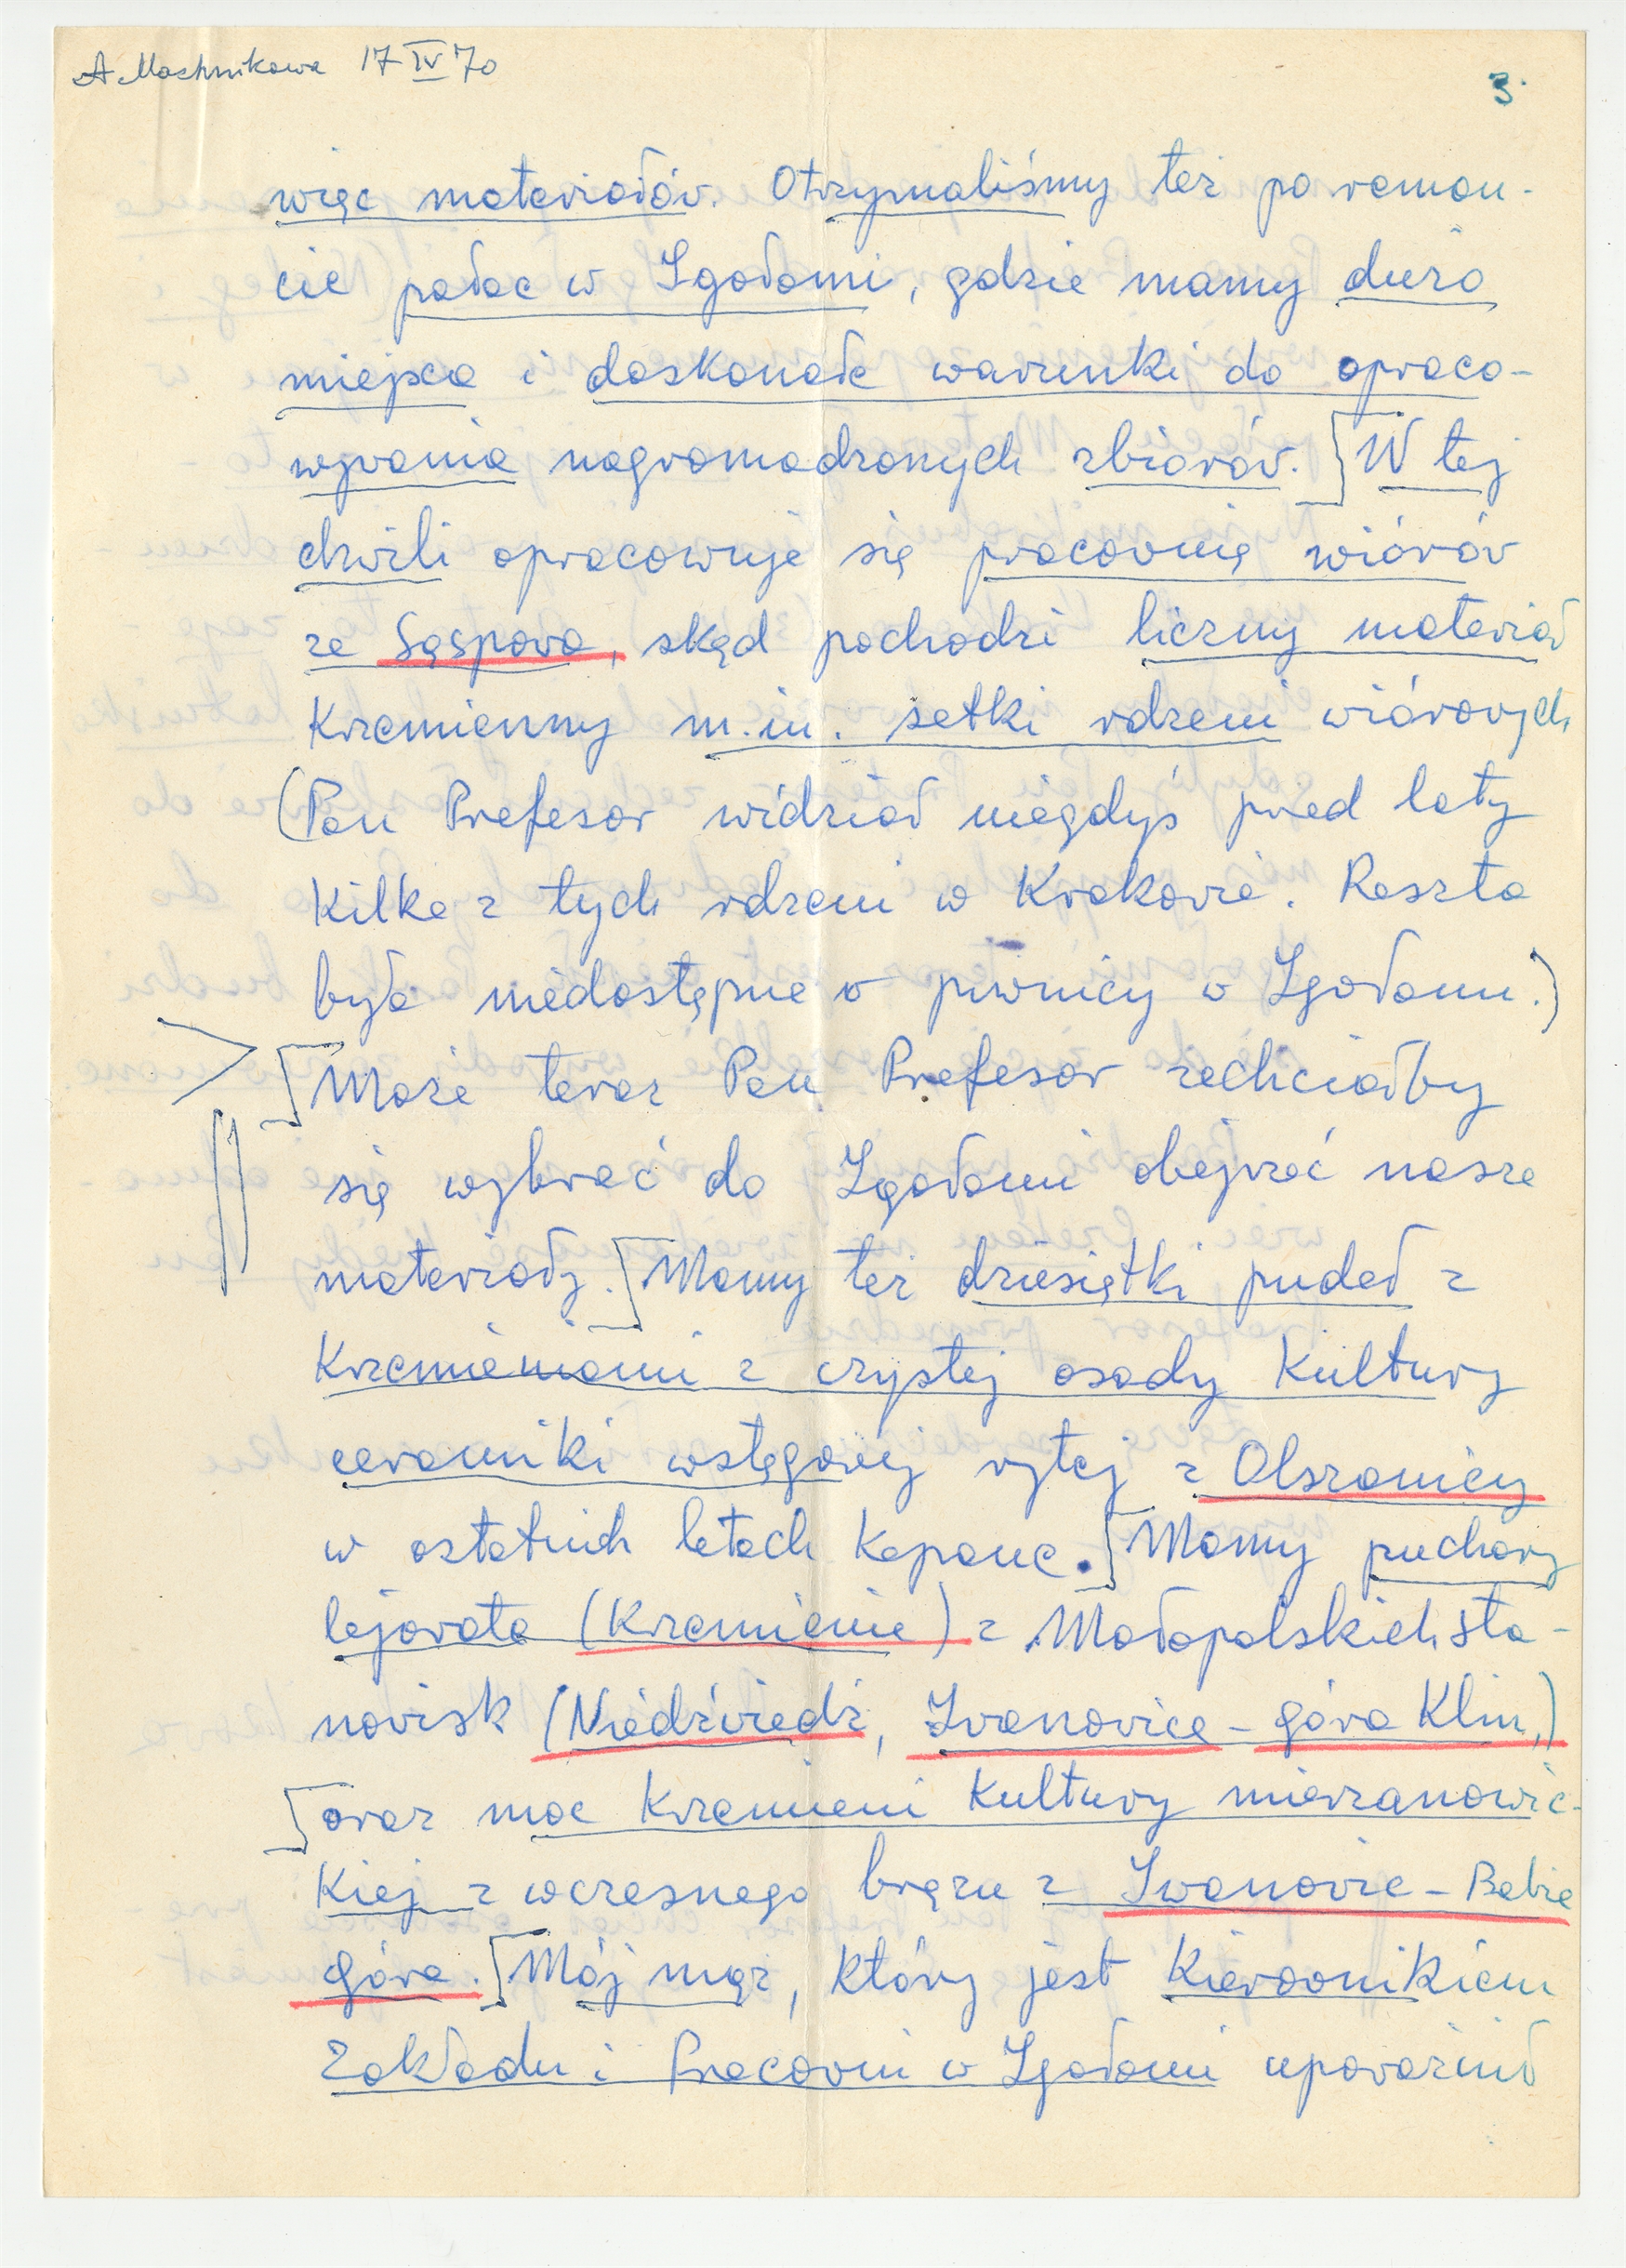 A Machnikowa 17 IV 70
3.
więc materiałów. Otrzymaliśmy też po remon-
cie pałac w Igołomi, gdzie mamy dużo
miejsca i doskonałe warunki do opraco-
wywania nagromadzonych zbiorów. W tej
chwili opracowuje się pracownię wiórów
ze Sąspowa, skąd pochodzi liczny materiał
krzemienny m.in. setki rdzeni wiórowych
(Pan Profesor widział niegdyś przed laty
kilka z tych rdzeni w Krakowie. Reszta
była niedostępna w piwnicy w Igołomi.)
Może teraz Pan Profesor zechciałby
się wybrać do Igołomi obejrzeć nasze
materiały. Mamy też dziesiątki pudeł z
krzemieniami z czystej osady kultury
ceramiki wstęgowej rytej z Olszanicy
w ostatnich latach kopane. Mamy puchary
lejowate (krzemienie) z Małopolskich sta-
nowisk (Niedźwiedź, Iwanowice - góra Klin,)
oraz moc krzemieni kultury mierzanowic-
kiej z wczesnego brązu z Iwanowic - Babia
góra. Mój mąż, który jest kierownikiem
Zakładu i Pracowni w Igołomi upoważnił